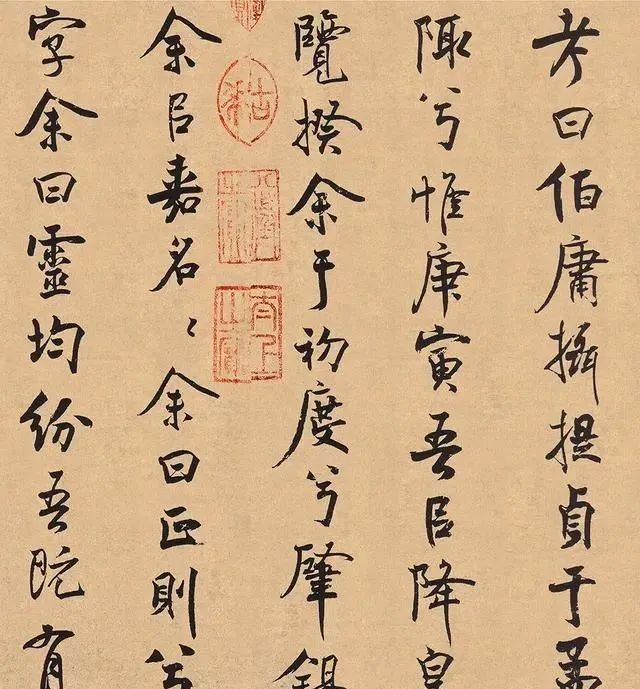 考曰伯庸攝提貞于孟
陬兮惟庚寅吾㠯降皇
覽揆余于初度兮肇錫
余㠯嘉名〻余曰正則兮
字余曰靈均紛吾既有